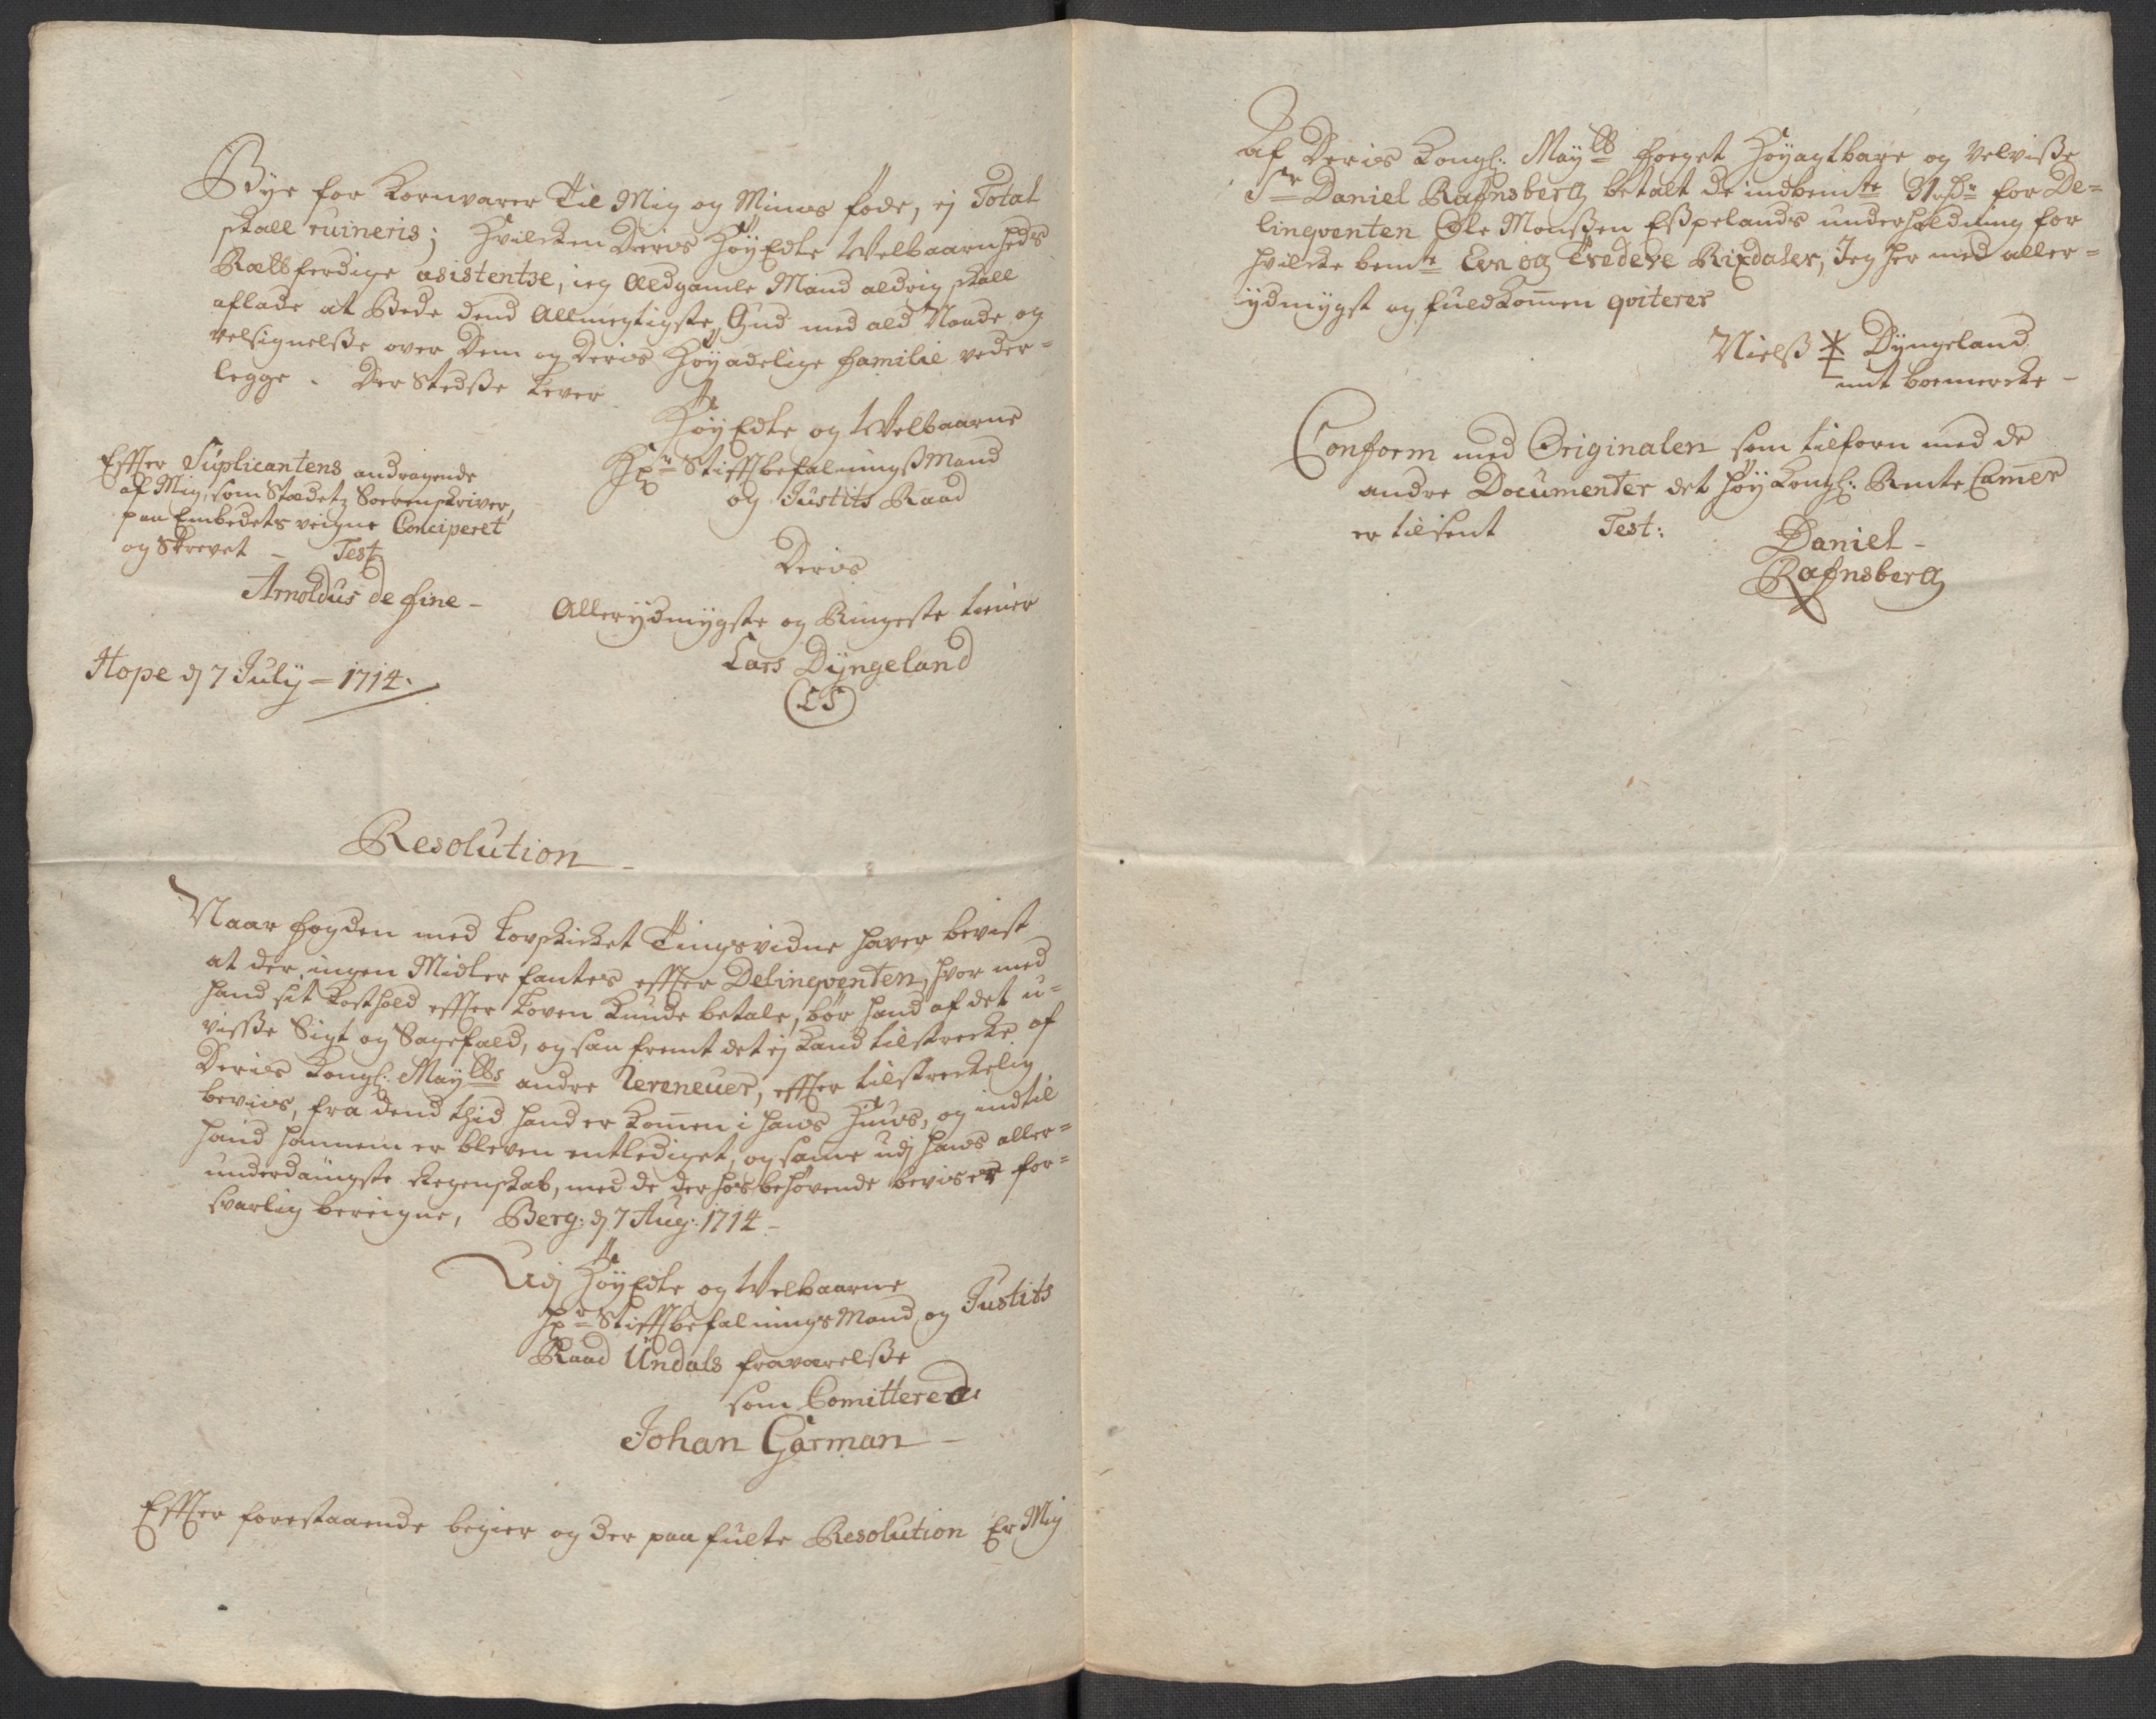 Bye for Kornvarer Til Mig og Mines føde, ej Total
skall ruineris; Hvilcken Deris HøyEdle Velbaarenheds
Rætferdige asistentse, ieg Aldgamle Mand aldrig skall
aflade at Bede dend Allmegtigste Gud med ald Naade og
velsignelsse over Dem og Deris Høyadelige Familie veder-
legge. Der stedsse lever
HøyEdle og Velbaarne
Hr Stiftsbefalningsmand
og Justits Raad
Deris
Allerydmygste og Ringeste tiener
Lars Dyngeland
LS
Effter Suplicantens andragende
af Mig, som Stædetz Sorenskriver,
paa Embedets veigne Conciperet
og Skrevet – Test
Arnoldus de Fine –
Hope d 7 July – 1714.
Resolution –
Naar Fogden med Lovskicket Tingsvidne haver bevist
at der ingen Midler fantes effter Delinqventen, hvor med
hand sit Kosthold effter Loven kunde betale, bør hand af det u-
visse Sigt og Sagefald, og saa fremt det ej kand tilstrecke af
Deris Kongl: Mayttes andre Revenuer, effter tilstreckelig
beviis, fra dend thid hand er kommen i hans Huus, og indtil
hand hannem er bleven entlediget, og samme udj hans aller-
underdanigste Regenskab, med de derhos behøvende beviser for-
svarlig bereigne, Berg: d 7 Aug: 1714 –
Udj HøyEdle og Velbaarne
Hr Stiftsbefalnings Mand og Justits
Raad Undals fraværelsse
som Comittered:
Johan Garman –
Effter forestaaende begier og der paa fulte Resolution Er Mig
af Deris Kongl: Maytts Foeget Høyagtbare og Velvisse
Sr Daniel Rafnsberg betalt de indbemte 31 rdr for De-
linqventen Ole Monssen Esspelands underholdning for
hvilcke bemte Een og Tredeve Rixdaler, Jeg her med aller-
ydmygst og fuldkommen qviterer
Nielss Dyngeland
mit boemercke –
Conform med Originalen som tilforn med de
andre Documenter det høy Kongl: Rente Camer
er tilsent Test:
Daniel –
Rafnsberg